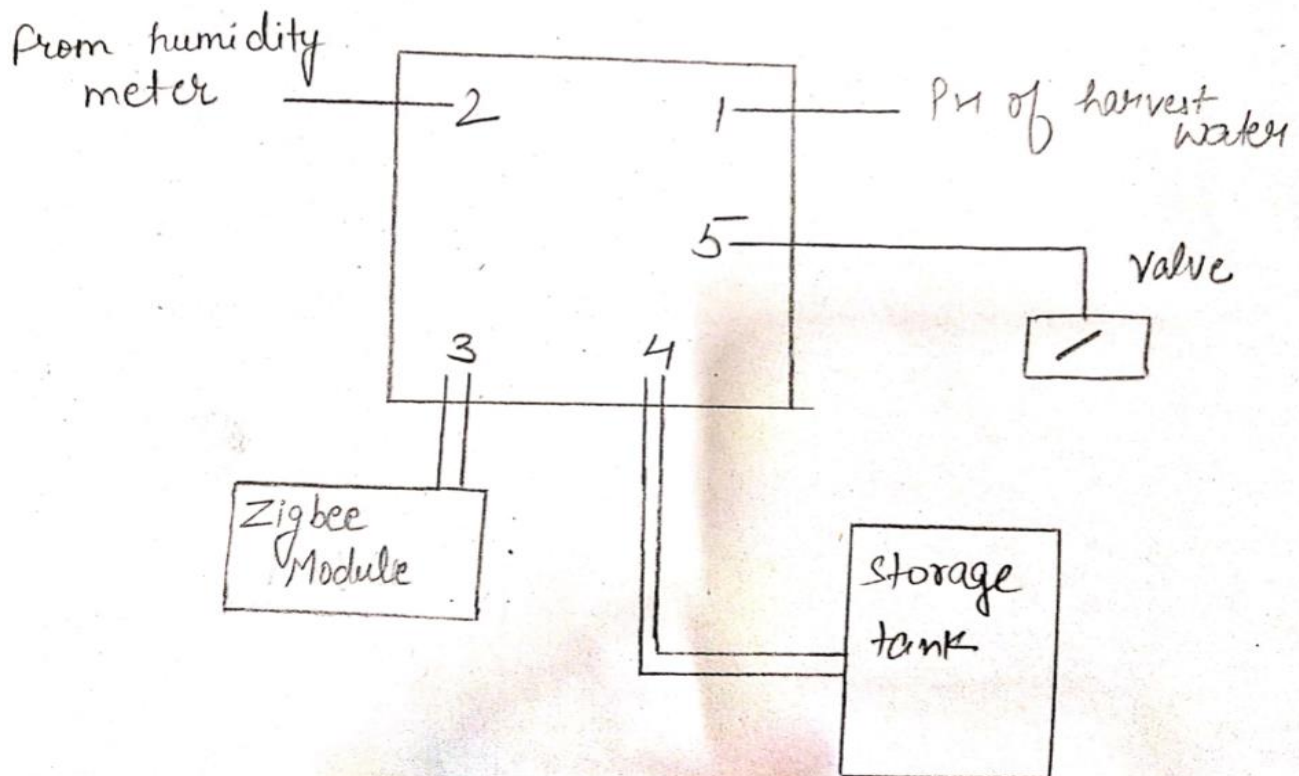 From humidity
meter
2
1
PH of harvest
water
5
valve
3
4
Zigbee
Module
Storage
tank